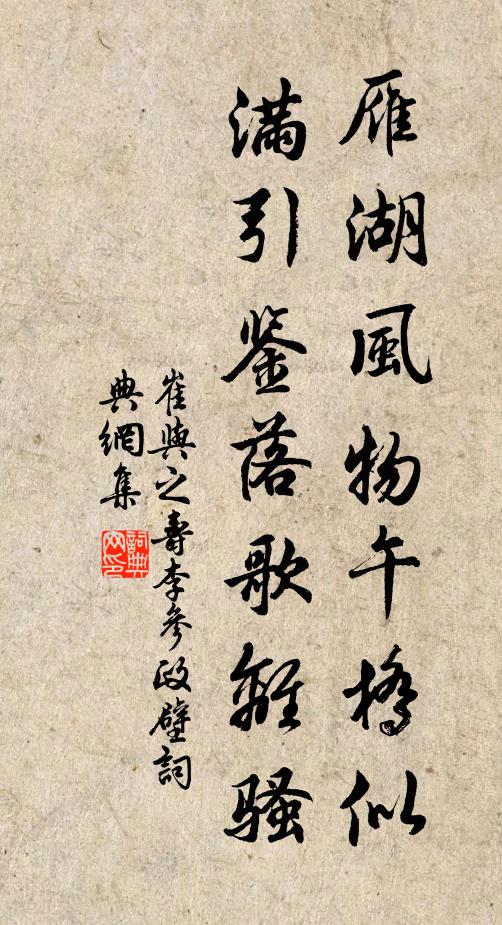 雁湖風物午橋似
滿引鉴落歌離騷
崔與之壽李參政壁詞
典網集
詞典網印